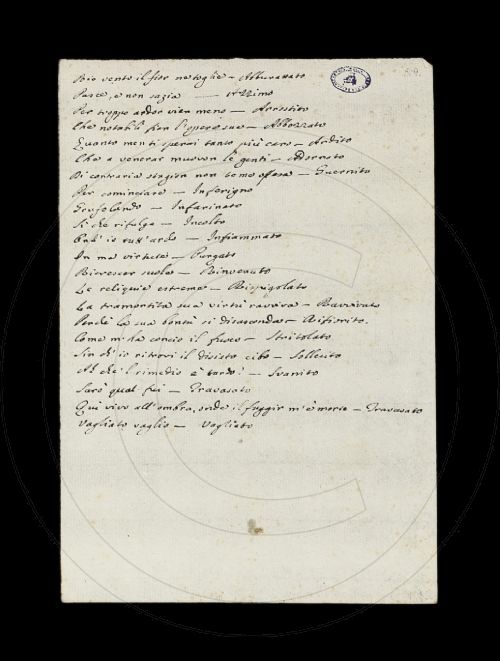 Rio vento il fior ne toglie – Abburattato
Pasce, e non sazia — Azzimo
Per troppo ardor vien meno — Arrostito
Che notabili fien l'opere sue — Abbozzato
Quanto men ti sperai tanto più caro — Ardito
Che a venerar muovon le genti — Adornato
Di contraria stagion non temo offesa — Guernito
Per cominciare — Inferigno
Grufolando — Infarinato
Sì che rifulga — Incolto
Ond' io tutt' ardo — Infiammato
In me virtute — Purgato
Rincrescer suole — Rinvenuto
Le reliquie estreme — Rispigolato
La tramortita sua virtù ravviva — Ravvivato
Perchè la sua bontà si disasconda — Rifiorito.
Come m'ha concio il fuoco — Stritolato
Sin ch'io ritrovi il disiato cibo — Sollecito
Al che 'l rimedio è tardo! — Svanito
Sarò qual fui — Travasato
Qui vivo all'ombra, onde il fuggir m'è morte — Travasato
Vagliato vaglio — Vagliato